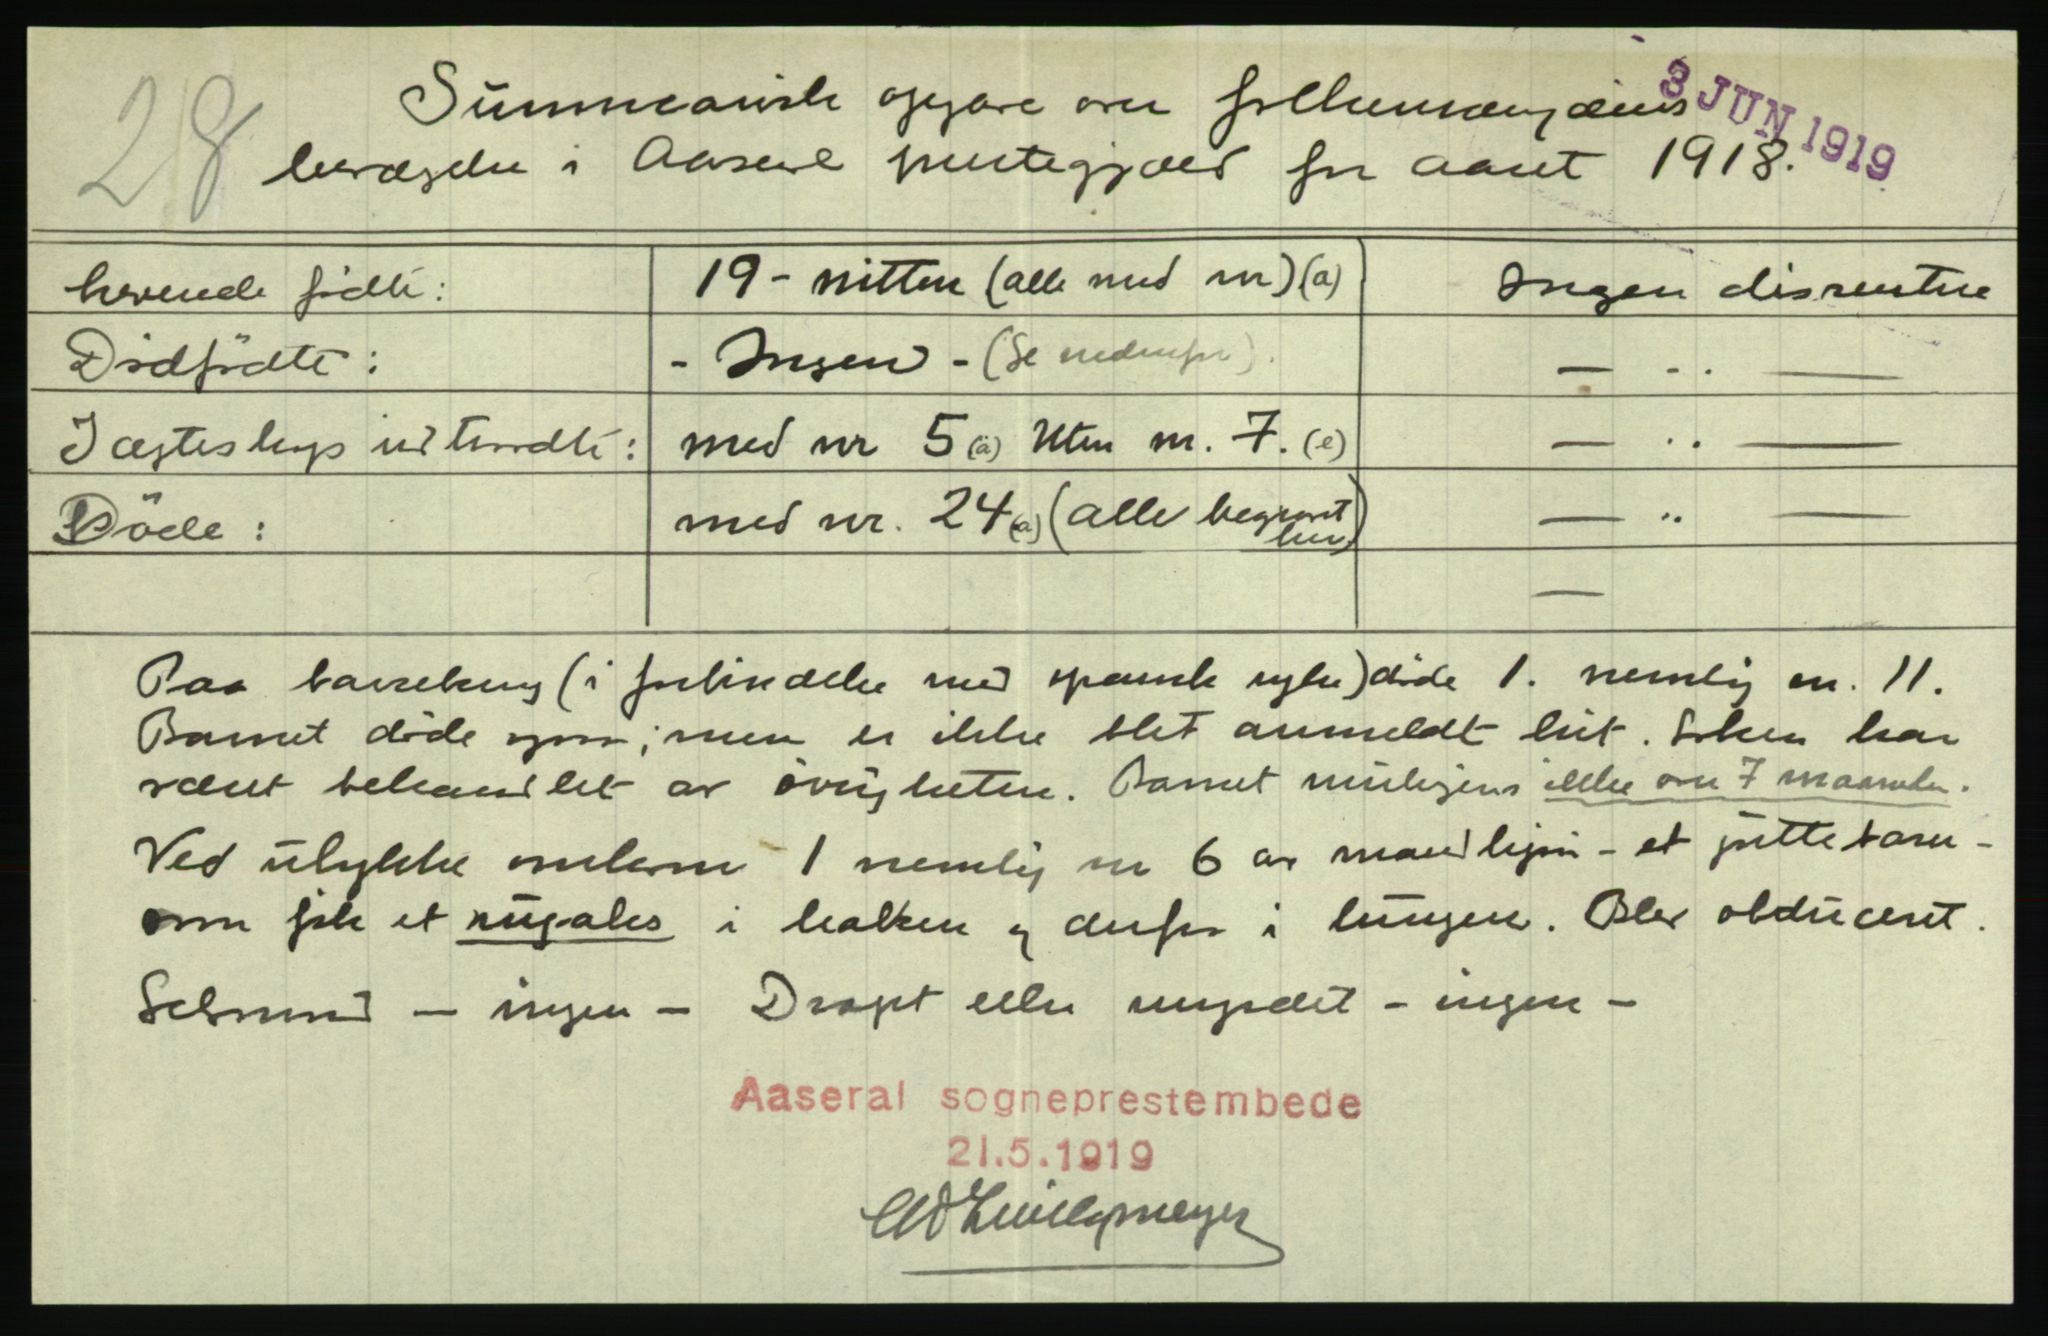 28
3 JUN 1919
Summarisk opgave over folkemængdens
bevægelse i Aaseral prestegjæld for aaret 1918.
Levende födte: 19 - nitten (alle med nr) (a) Ingen dissentere
Dödfödte: - Ingen - (Se nedenfor). — - .. —
I egteskap indtraadte: med nr 5 (a) Uten nr. 7. (e) — .. —
Döde: med nr. 24 (a) (alle begravet her) — .. —
—
Paa barselseng (i forbindelse med spansk syke) döde 1. nemlig nr. 11.
Barnet döde ; men er ikke blet anmeldt hit. Saken har
været behandlet av övrigheten. Barnet muligens ikke over 7 maaneder.
Ved ulykke omkom 1 nemlig nr 6 av mandkjön - et guttebarn -
som fik et rugaks i halsen og derfra i lungen. Blev obduceret.
Selvmord — ingen — Dræpt eller myrdet - ingen -
Aaseral sogneprestembede
21.5.1919